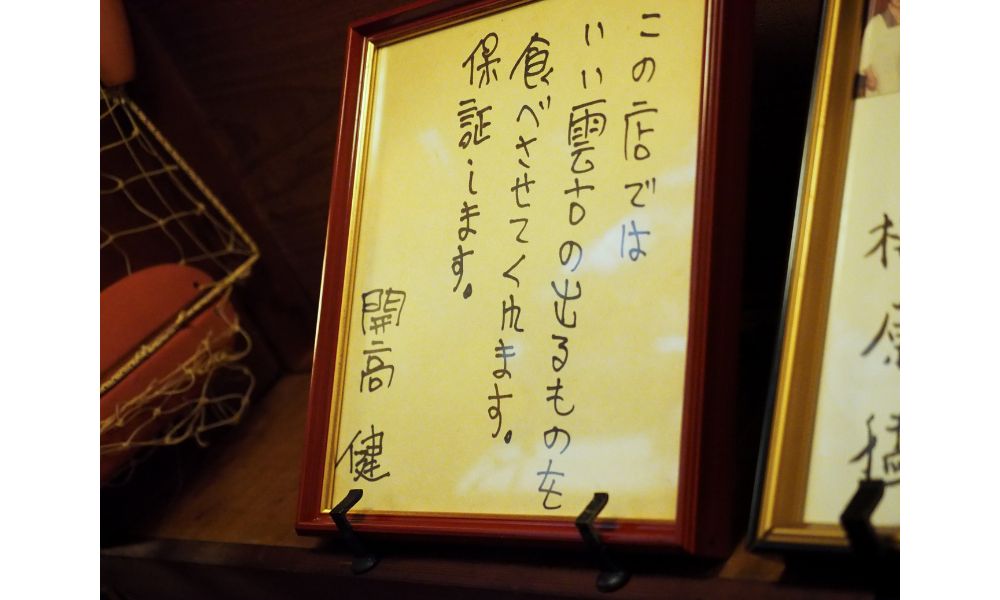 この店では
いい雲古の出るものを
食べさせてくれます。
保証します。
開高 健